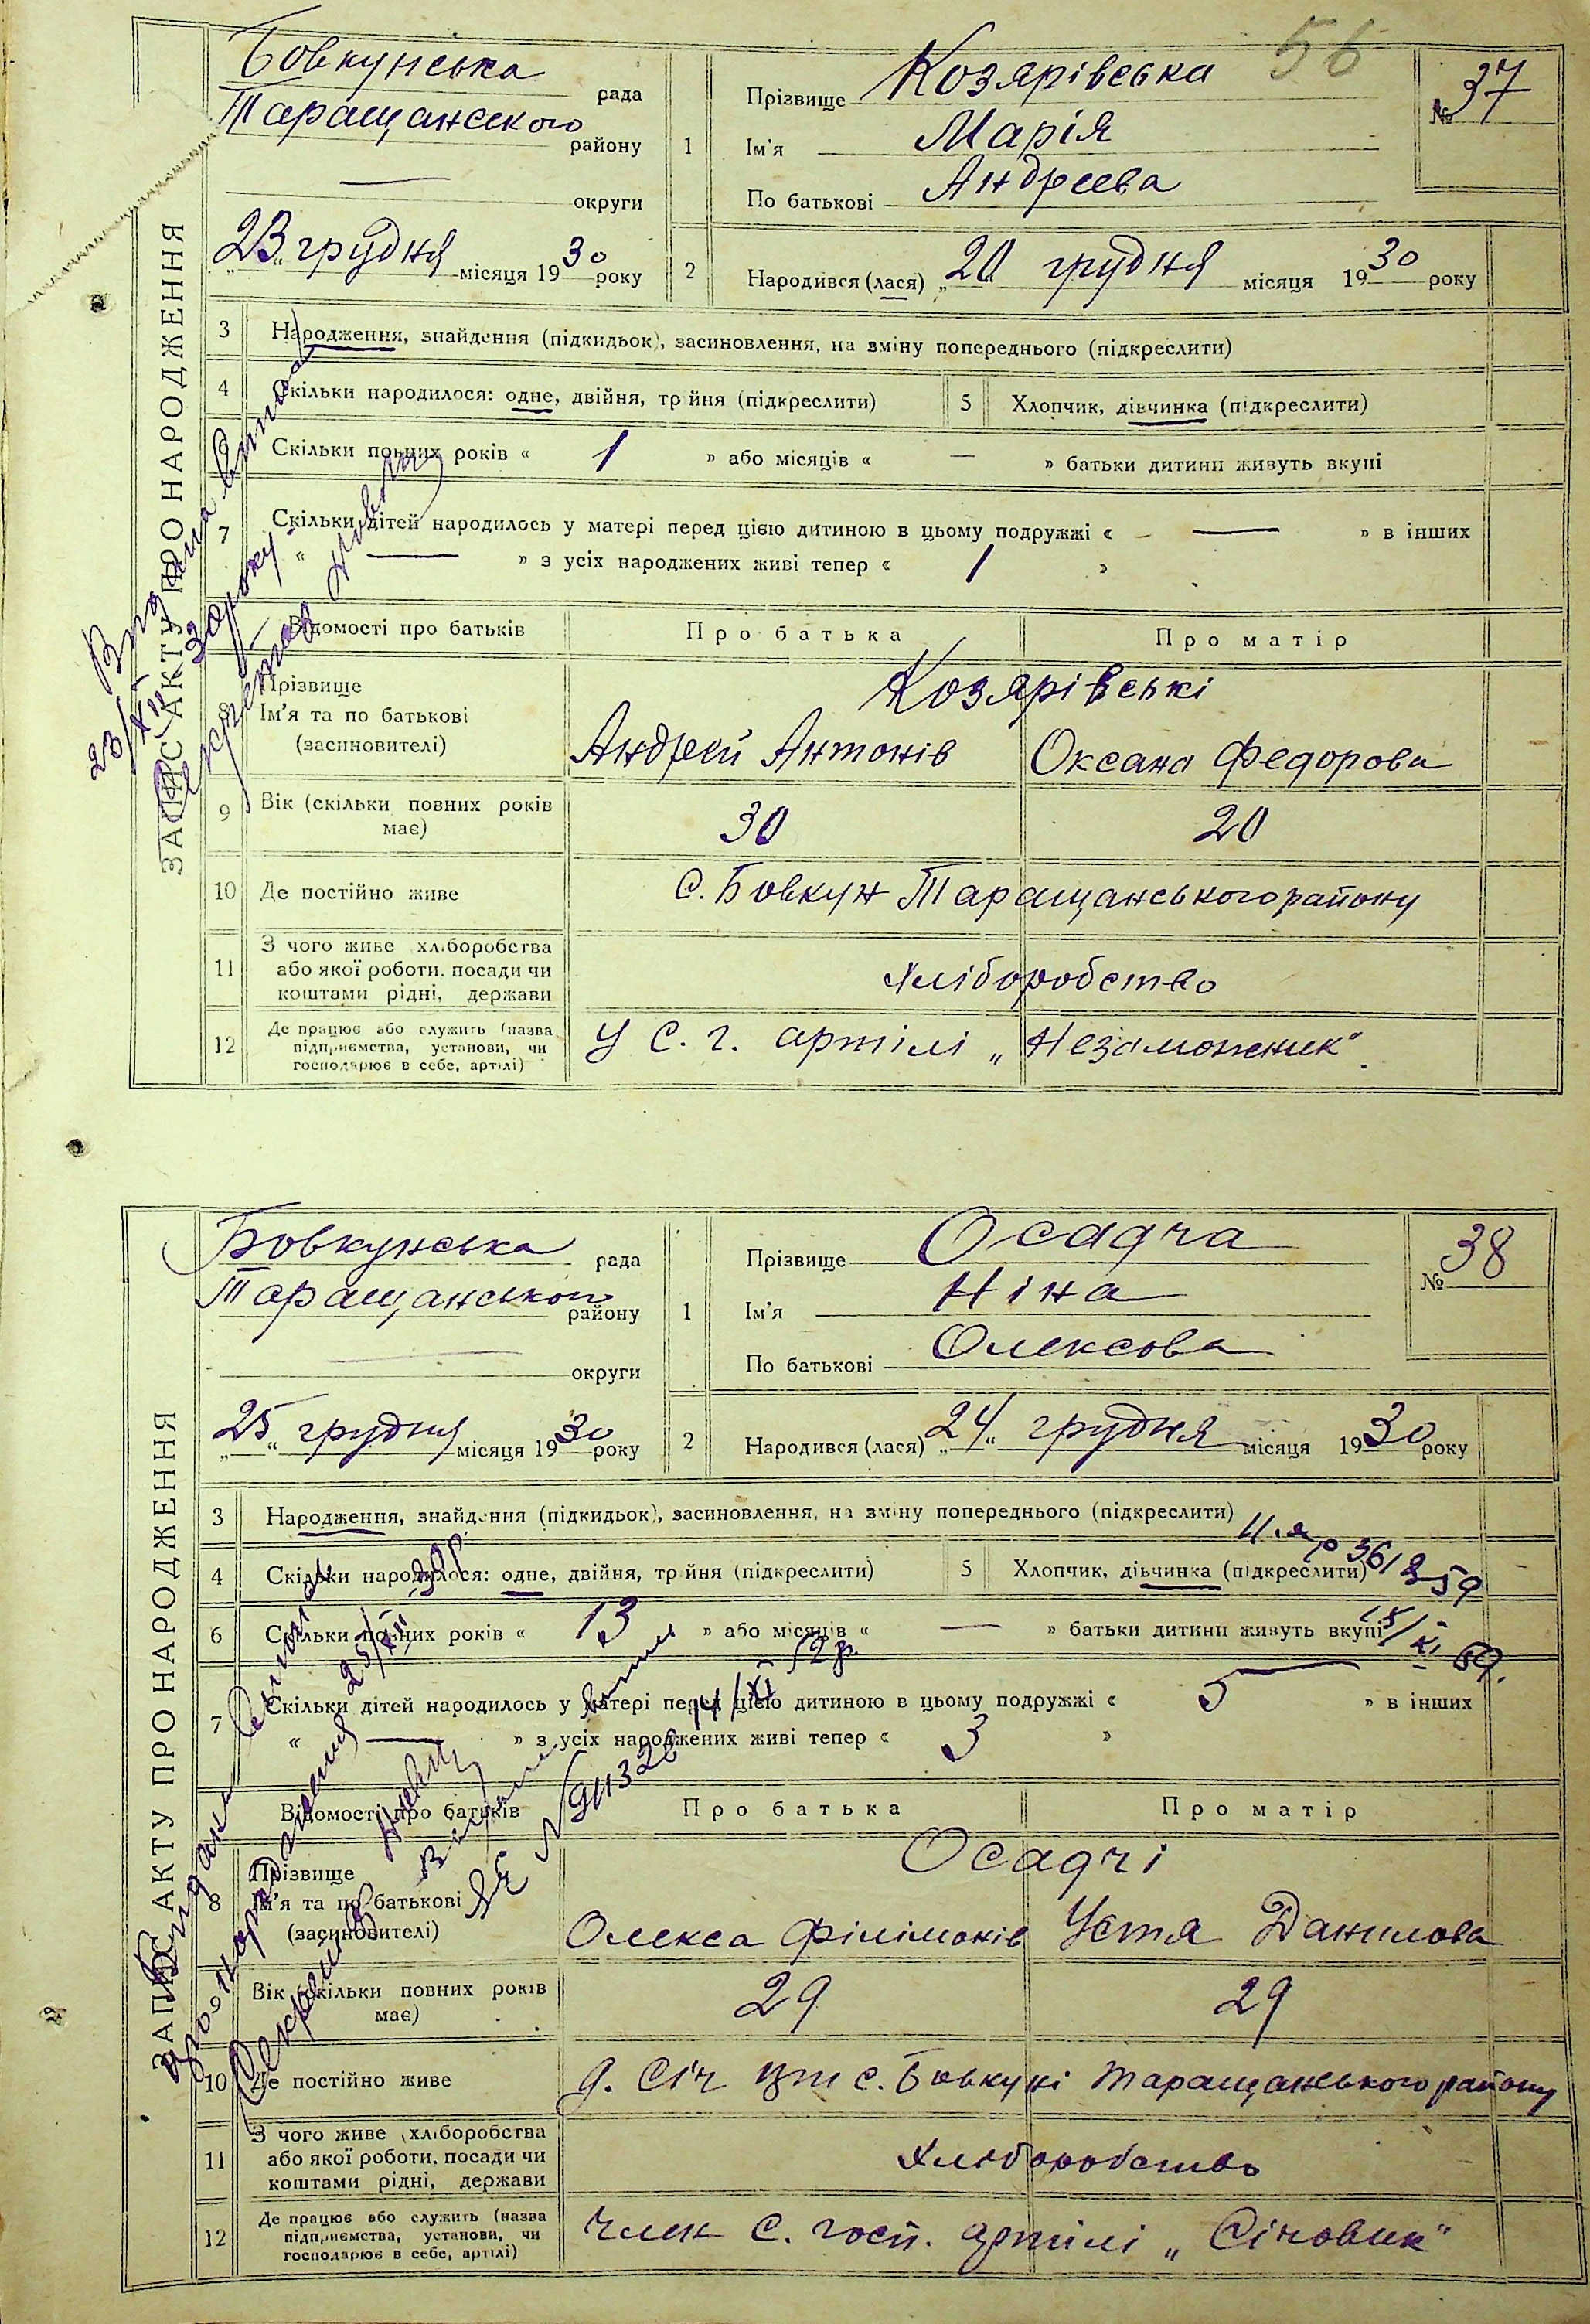 56
ЗАПИС АКТУ ПРО НАРОДЖЕННЯ
Бовкунська рада
Таращанського району
— округи
„23“ грудня місяця 1930 року
1 Прізвище Козярівська
Ім'я Марія
По батькові Андреева
№ 37
2 Народився (лася) „20“ грудня місяця 1930 року
3 Народження, знайдення (підкидьок), засиновлення, на зміну попереднього (підкреслити)
4 Скільки народилося: одне, двійня, тройня (підкреслити)
5 Хлопчик, дівчинка (підкреслити)
6 Скільки повних років « 1 » або місяців « — » батьки дитини живуть вкупі
7 Скільки дітей народилось у матері перед цією дитиною в цьому подружжі « — » в інших
« — » з усіх народжених живі тепер « 1 »
Відомості про батьків Про батька Про матір
8 Прізвище Козярівські
Ім'я та по батькові
(засиновителі) Андрей Антонів Оксана Федорова
9 Вік (скільки повних років
має) 30 20
10 Де постійно живе С. Бовкун Таращанського району
11 З чого живе хліборобства
або якої роботи, посади чи
коштами рідні, держави
Хліборобство
12 Де працює або служить (назва
підприємства, установи, чи
господарює в себе, артілі)
У С. г. артілі „Незаможник“.
23/XII 30 року
Секретар
ЗАПИС АКТУ ПРО НАРОДЖЕННЯ
Бовкунська рада
Таращанського району
— округи
„25“ грудня місяця 1930 року
1 Прізвище Осадча
Ім'я Ніна
По батькові Олексова
№ 38
2 Народився (лася) „24“ грудня місяця 1930 року
3 Народження, знайдення (підкидьок), засиновлення, на зміну попереднього (підкреслити)
4 Скільки народилося: одне, двійня, тройня (підкреслити)
5 Хлопчик, дівчинка (підкреслити)
6 Скільки повних років « 13 » або місяців « — » батьки дитини живуть вкупі
7 Скільки дітей народилось у матері перед цією дитиною в цьому подружжі « 5 » в інших
« — » з усіх народжених живі тепер « 3 »
Відомості про батьків Про батька Про матір
8 Прізвище Осадчі
Ім'я та по батькові
(засиновителі) Олекса Філімонів Устя Данилова
9 Вік (скільки повних років
має) 29 29
10 Де постійно живе д. Січ с. Бовкуні Таращанського району
11 З чого живе хліборобства
або якої роботи, посади чи
коштами рідні, держави
Хліборобство
12 Де працює або служить (назва
підприємства, установи, чи
господарює в себе, артілі)
Член С. госп. артілі „Січовик“
Видана виписка
про народження 25/XII 30 р.
Секретар
14/XI 52 р.